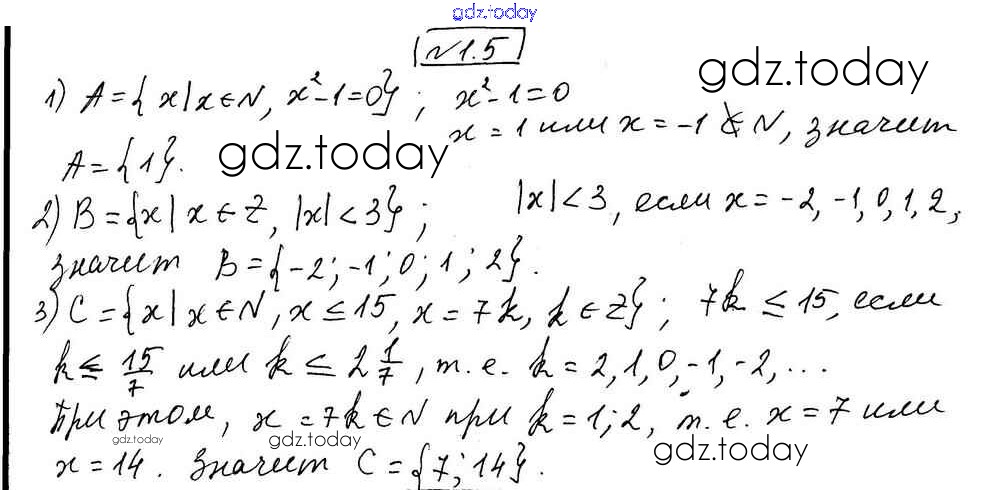 gdz.today
№1.5
gdz.today
1) A={x|x∈N, x²-1=0}; x²-1=0
x=1 или x=-1 ∉ N, значит
A={1}.
gdz.today
2) B={x|x∈Z, |x|<3}; |x|<3, если x=-2,-1,0,1,2,
значит B={-2;-1;0;1;2}.
3) C={x|x∈N, x≤15, x=7k, k∈Z}; 7k≤15, если
k≤15/7 или k≤2 1/7, т.е. k=2,1,0,-1,-2,...
При этом, x=7k∈N при k=1;2, т.е. x=7 или
gdz.today
gdz.today
gdz.today
x=14. Значит C={7;14}.